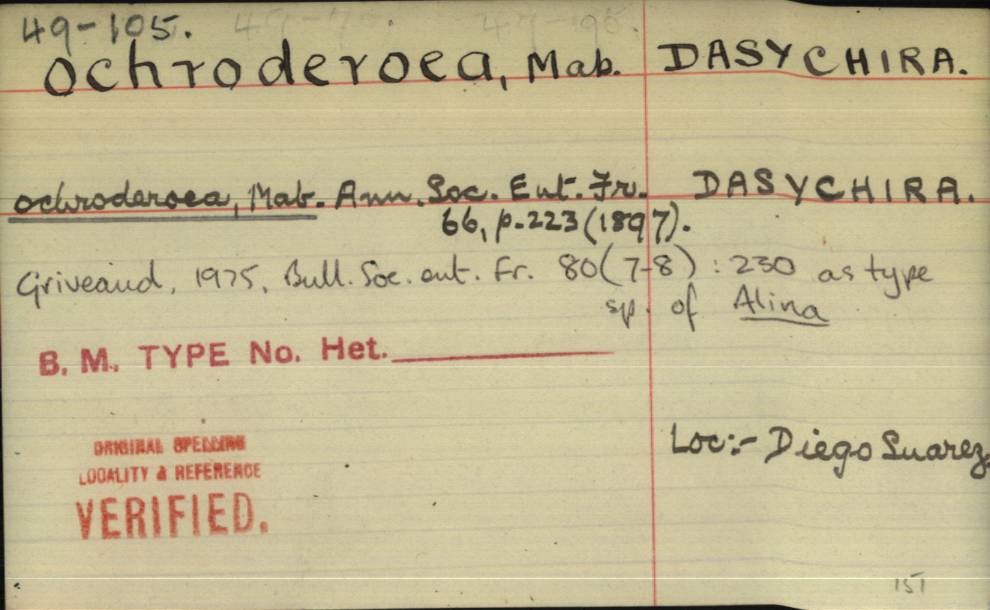 49-105.
ochroderoea, Mab. DASYCHIRA.
ochroderoea, Mab. Ann. Soc. Ent. Fr. DASYCHIRA.
66, p.223 (1897).
Griveaud, 1975, Bull. Soc. ent. Fr. 80(7-8) : 230 as type
sp. of Alina
B. M. TYPE No. Het.
Loc:- Diego Suarez
ORIGINAL SPELLING
LOCALITY & REFERENCE
VERIFIED.
151